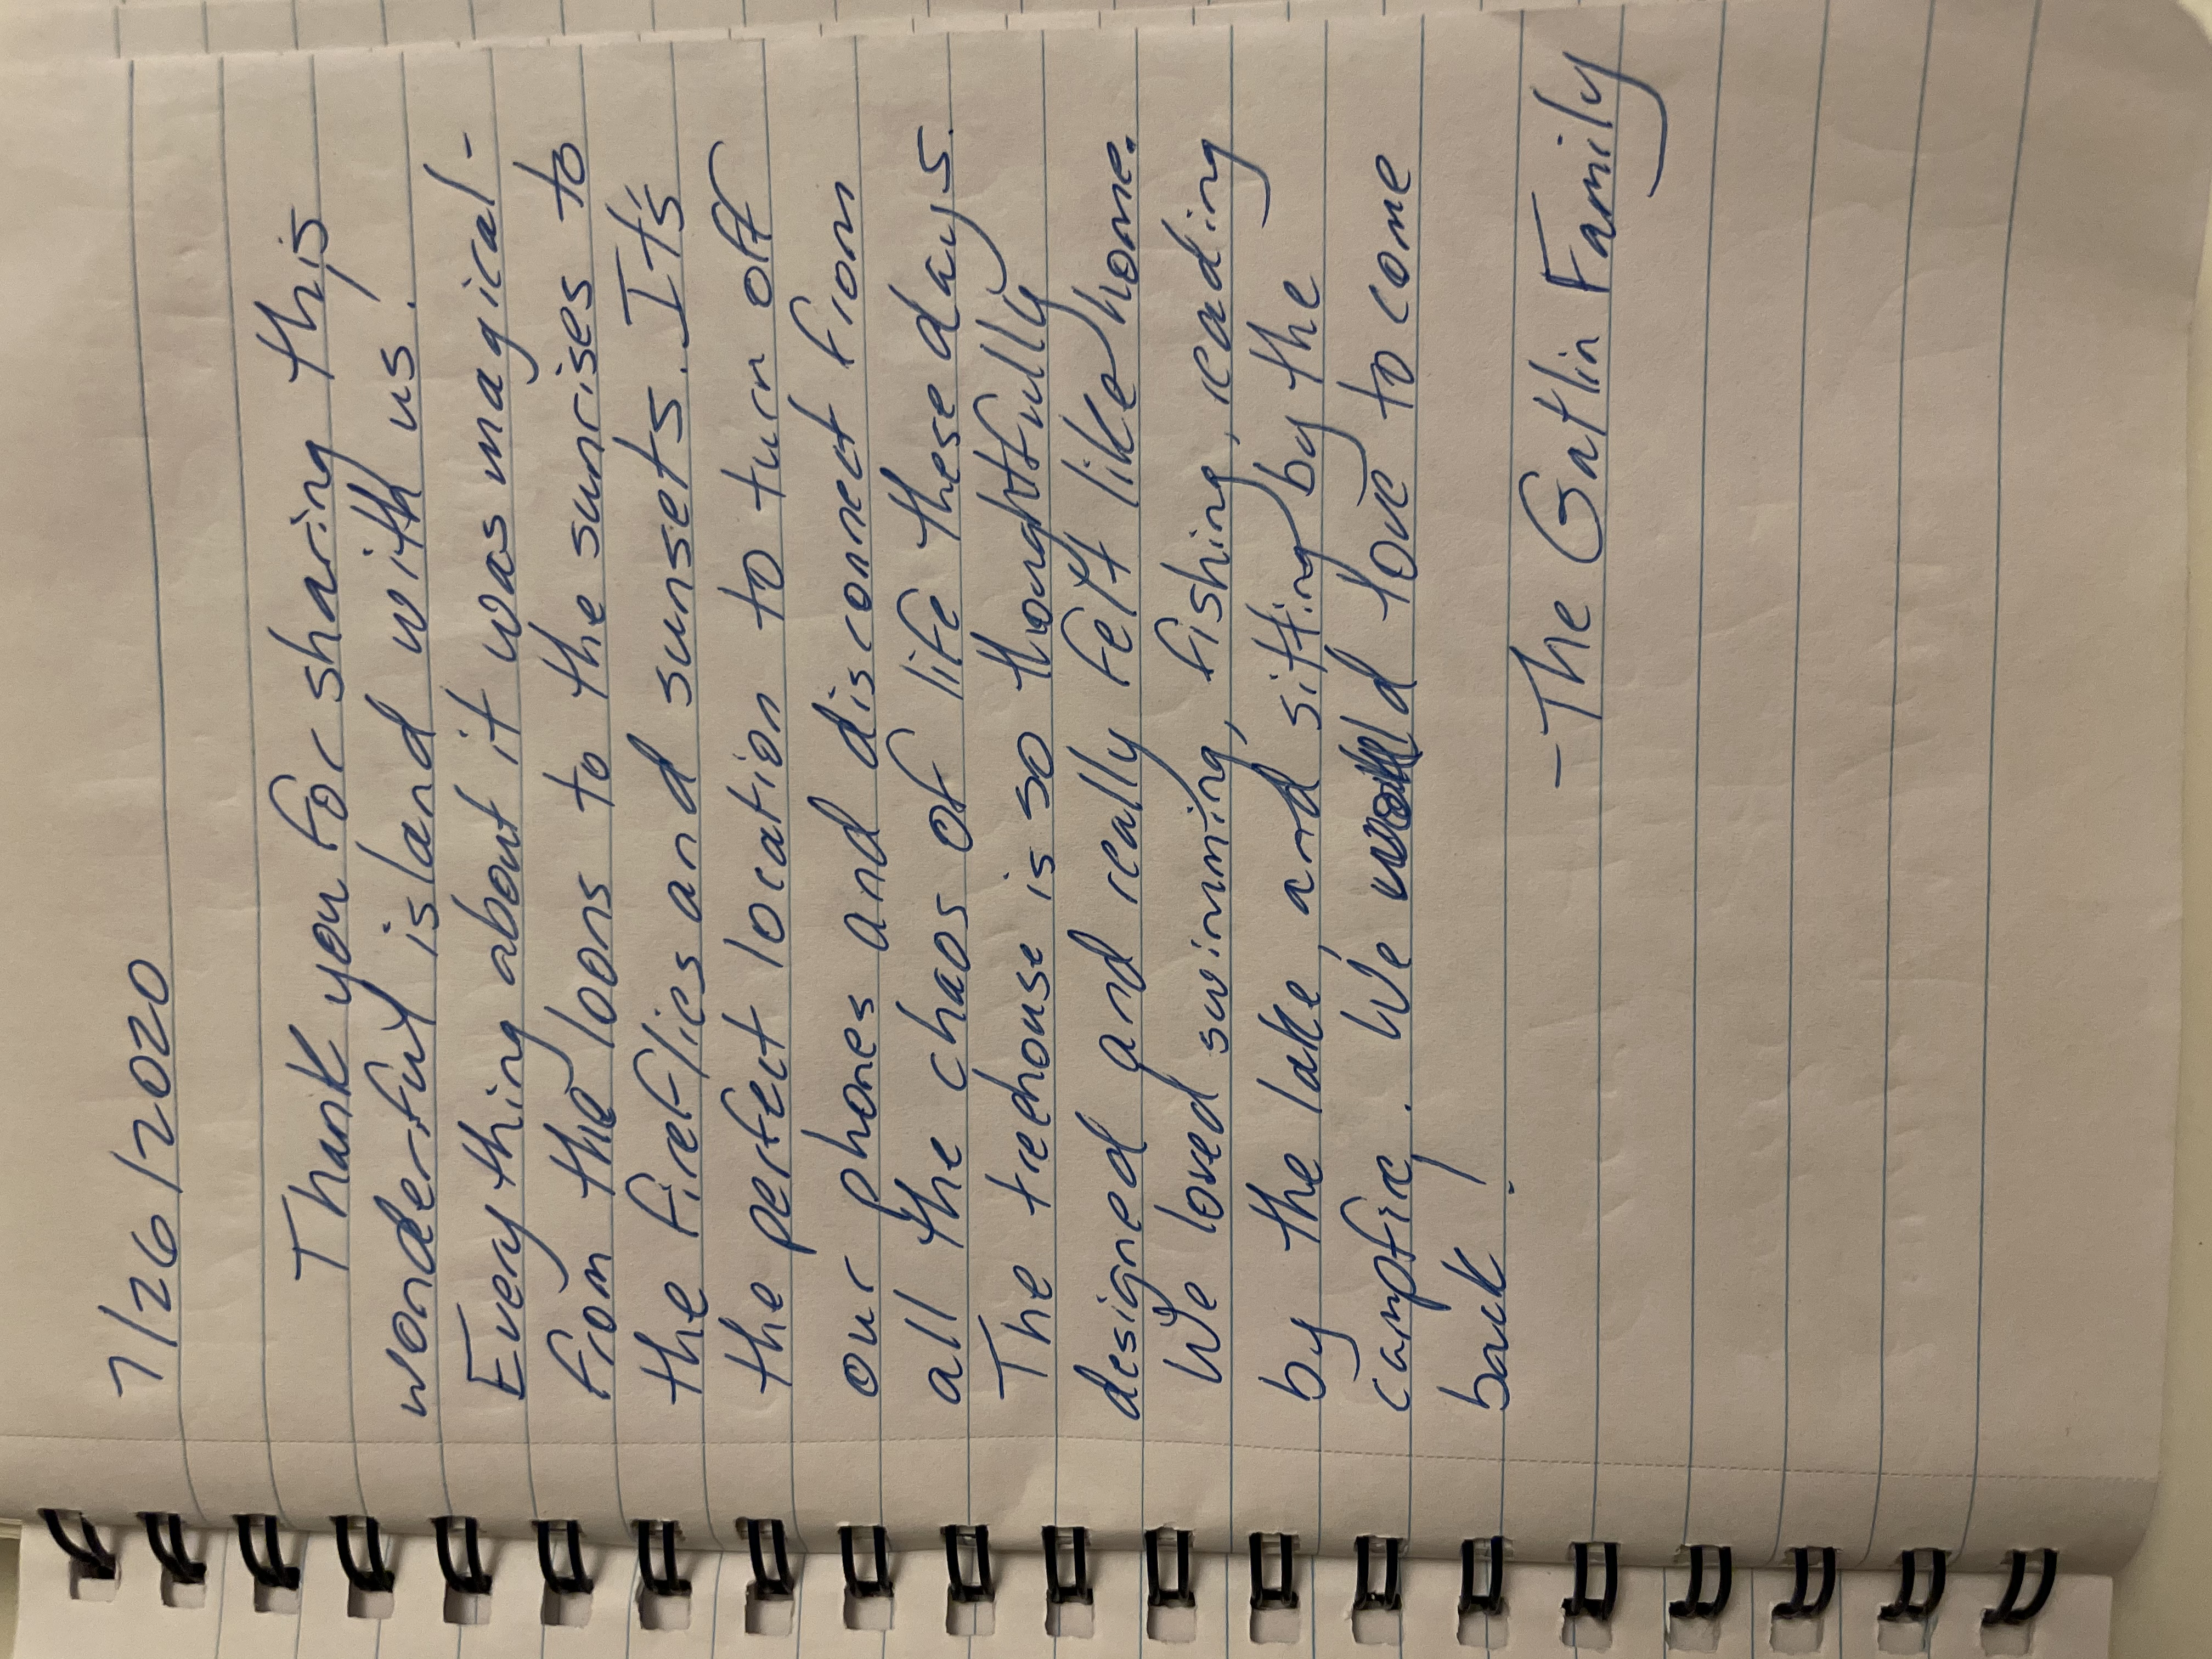 7/26/2020
Thank you for sharing this
wonderful island with us!
Everything about it was magical-
from the loons to the sunrises to
the fireflies and sunsets. It's
the perfect location to turn off
our phones and disconnect from
all the chaos of life these days.
The treehouse is so thoughtfully
designed and really felt like home.
We loved swimming, fishing, reading
by the lake, and sitting by the
campfire. We would love to come
back!
-The Gatlin Family